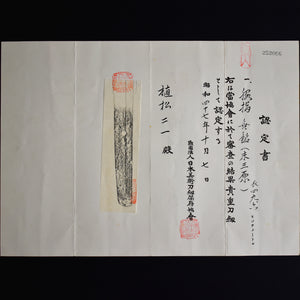 認定書
一、脇指 無銘（末三原）
右は當協會に於て審査の結果貴重刀剣
として認定する
昭和四十七年十月七日
財団法人日本美術刀剣保存協會
植松二一殿